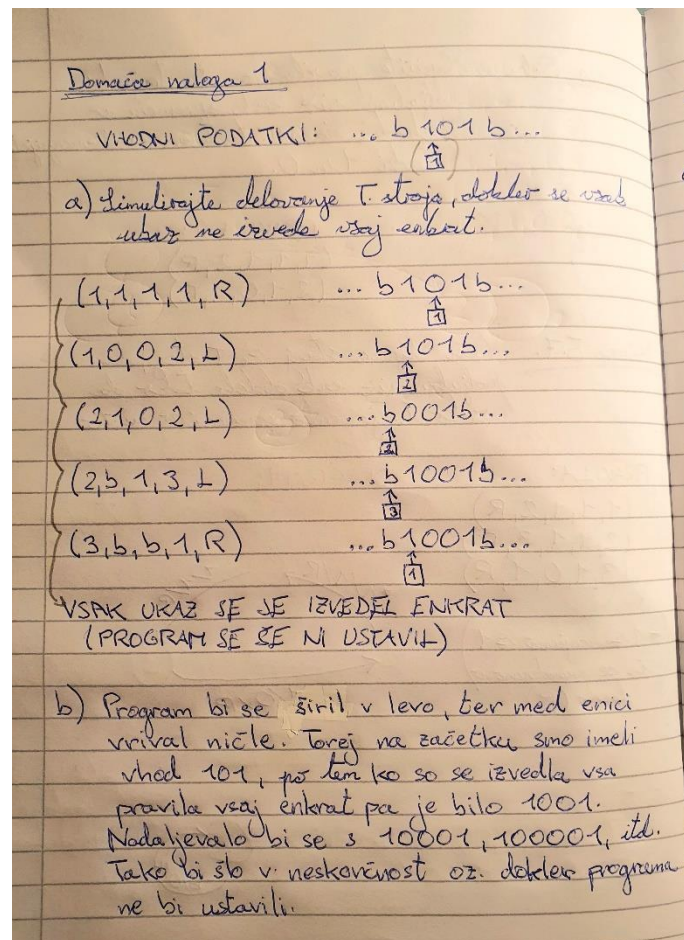 Domača naloga 1
VHODNI PODATKI: ... b 101 b...
1
a) Simulirajte delovanje T. stroja, dokler se vsak
ukaz ne izvede vsaj enkrat.
(1,1,1,1,R) ... b101b...
1
(1,0,0,2,L) ...b101b...
2
(2,1,0,2,L) ...b001b...
2
(2,b,1,3,L) ... b1001b...
3
(3,b,b,1,R) ...b1001b...
1
VSAK UKAZ SE JE IZVEDEL ENKRAT
(PROGRAM SE ŠE NI USTAVIL)
b) Program bi se širil v levo, ter med enici
vrival ničle. Torej na začetku smo imeli
vhod 101, po tem ko so se izvedla vsa
pravila vsaj enkrat pa je bilo 1001.
Nadaljevalo bi se s 10001, 100001, itd.
Tako bi šlo v neskončnost oz. dokler programa
ne bi ustavili.